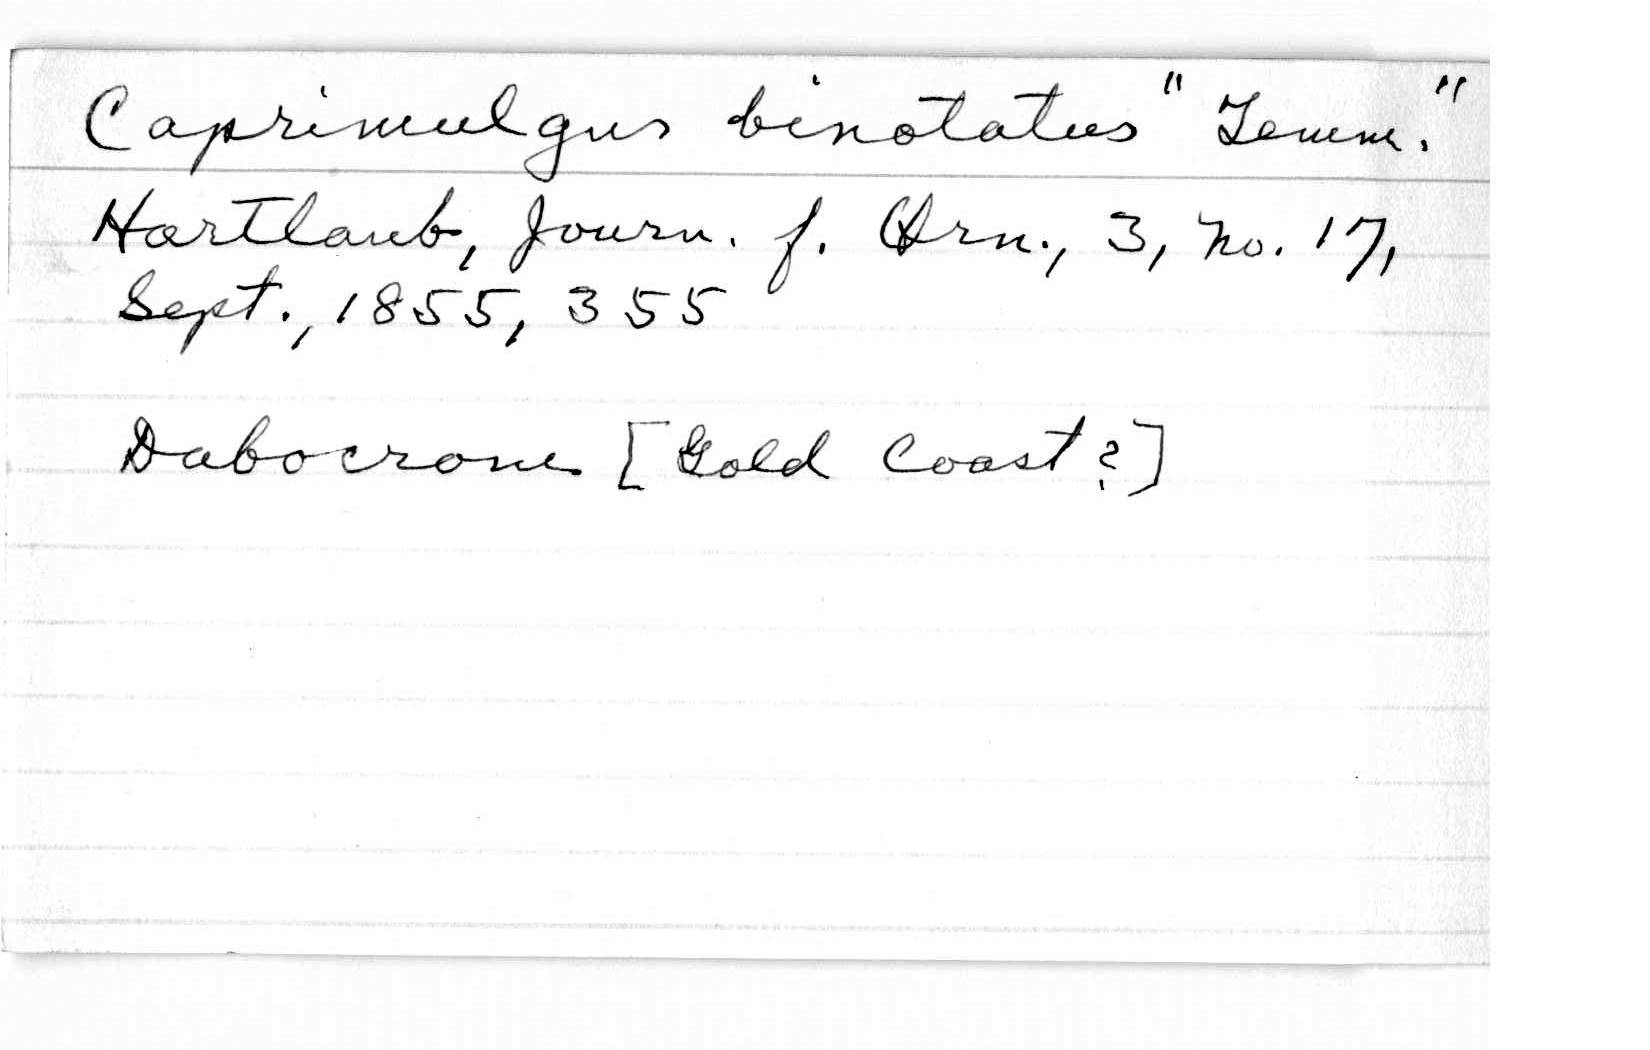 Caprimulgus binotatus "Temm."
Hartlaub, Journ. f. Orn., 3, no. 17,
Sept., 1855, 355
Dabocrom. [Gold Coast?]